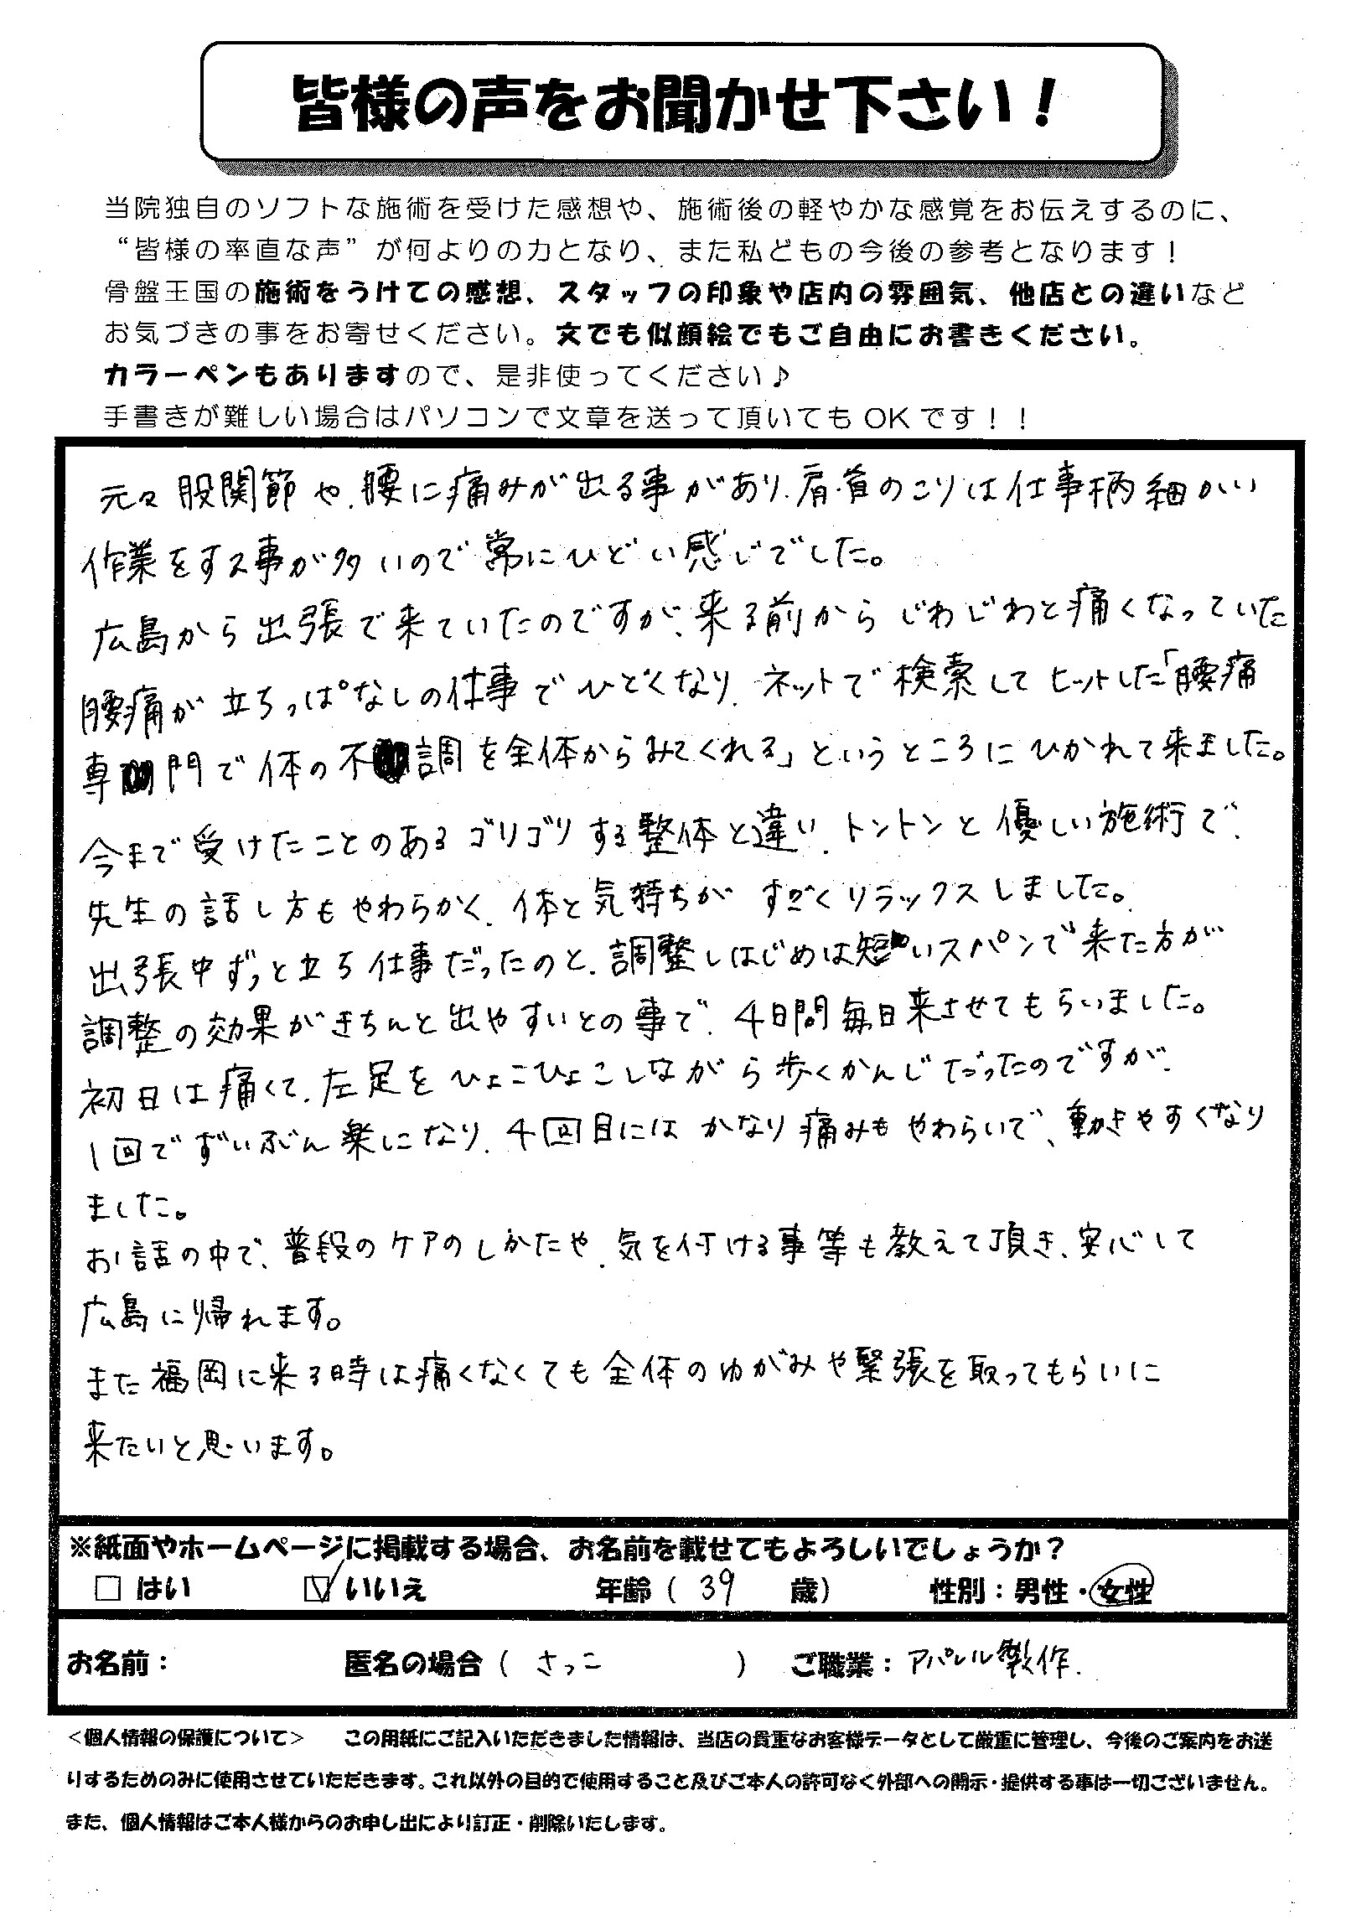 皆様の声をお聞かせ下さい！
当院独自のソフトな施術を受けた感想や、施術後の軽やかな感覚をお伝えするのに、
“皆様の率直な声”が何よりの力となり、また私どもの今後の参考となります！
骨盤王国の施術をうけての感想、スタッフの印象や店内の雰囲気、他店との違いなど
お気づきの事をお寄せください。文でも似顔絵でもご自由にお書きください。
カラーペンもありますので、是非使ってください♪
手書きが難しい場合はパソコンで文章を送って頂いてもOKです！！
元々股関節や、腰に痛みが出る事があり、肩・首のこりは仕事柄細かい
作業をする事が多いので常にひどい感じでした。
広島から出張で来ていたのですが、来る前からじわじわと痛くなっていた
腰痛が立ちっぱなしの仕事でひどくなり、ネットで検索してヒットした「腰痛
専門で体の不調を全体からみてくれる」というところにひかれて来ました。
今まで受けたことのあるゴリゴリする整体と違い、トントンと優しい施術で、
先生の話し方もやわらかく、体と気持ちがすごくリラックスしました。
出張中ずっと立ち仕事だったのと、調整しはじめは短いスパンで来た方が
調整の効果がきちんと出やすいとの事で、4日間毎日来させてもらいました。
初日は痛くて、左足をひょこひょこしながら歩くかんじだったのですが、
1回でずいぶん楽になり、4回目にはかなり痛みもやわらいで、動きやすくなり
ました。
お話の中で、普段のケアのしかたや、気を付ける事等も教えて頂き、安心して
広島に帰れます。
また福岡に来る時は痛くなくても全体のゆがみや緊張を取ってもらいに
来たいと思います。
※紙面やホームページに掲載する場合、お名前を載せてもよろしいでしょうか？
□はい ☑いいえ 年齢（ 39 歳） 性別：男性・女性
お名前： 匿名の場合（ さっこ ） ご職業：アパレル製作.
＜個人情報の保護について＞ この用紙にご記入いただきました情報は、当店の貴重なお客様データとして厳重に管理し、今後のご案内をお送
りするためのみに使用させていただきます。これ以外の目的で使用すること及びご本人の許可なく外部への開示・提供する事は一切ございません。
また、個人情報はご本人様からのお申し出により訂正・削除いたします。